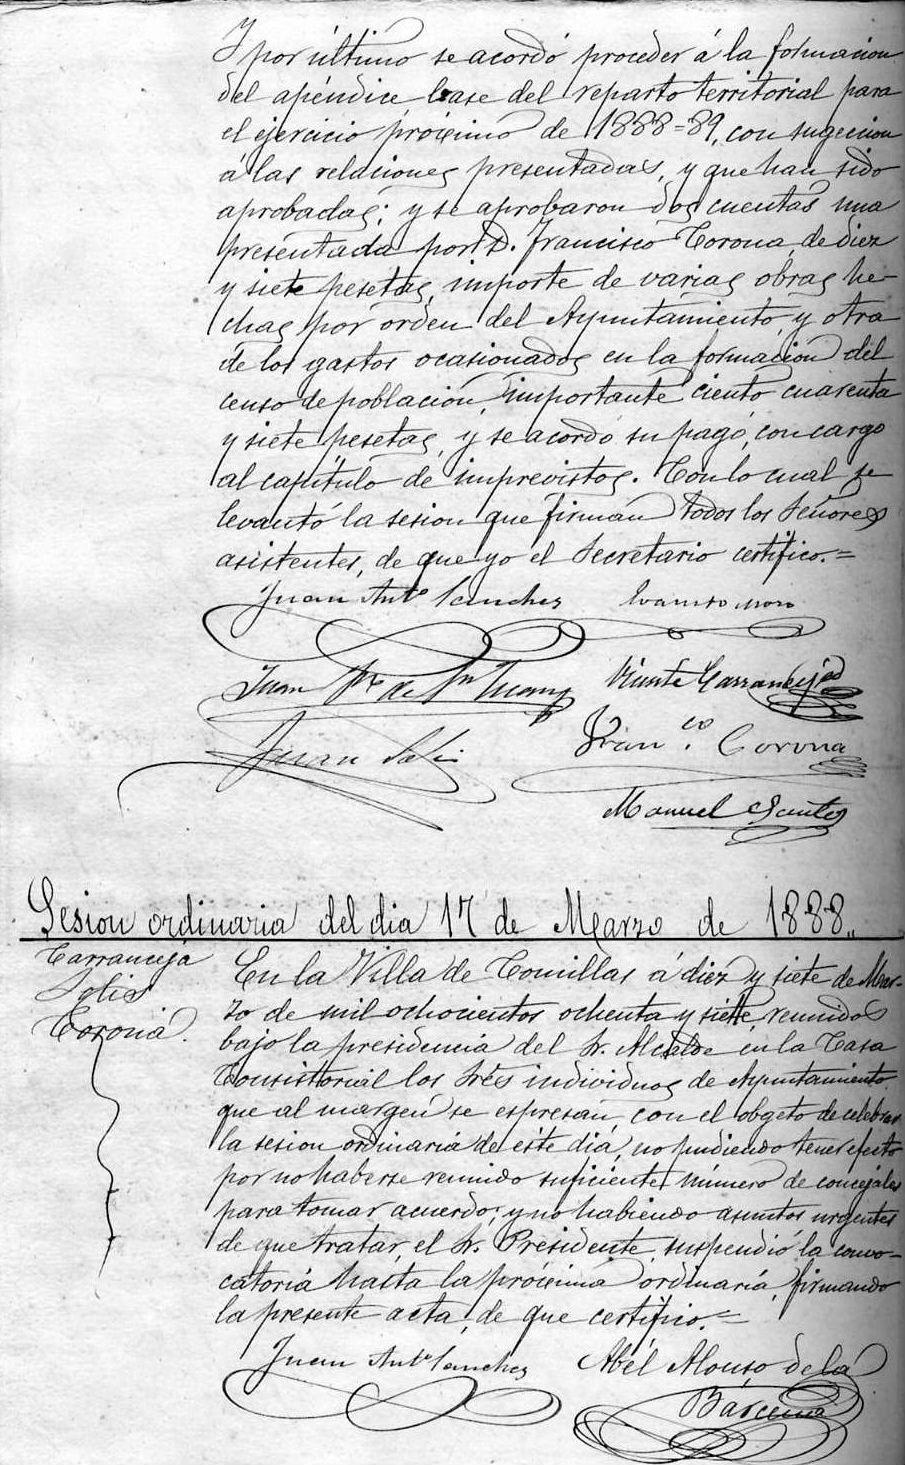 Y por último se acordó proceder á la formacion
del apéndice base del reparto territorial para
el ejercicio próximo de 1888=89, con sugecion
á las relaciones presentadas, y que han sido
aprobadas; y se aprobaron dos cuentas una
presentada por D. Francisco Corona, de diez
y siete pesetas, importe de varias obras he-
chas por orden del Ayuntamiento, y otra
de los gastos ocasionados en la formacion del
censo de población, importante ciento cuarenta
y siete pesetas, y se acordó su pagó, con cargo
al capítulo de imprevistos. Con lo cual se
levantó la sesion que firman todos los Señores
asistentes, de que yo el Secretario certifico.=
Juan Antº Sanchez
Juan de
Vicente Carranceja
Juan Solis
Francº. Corona
Manuel Santos
Sesion ordinaria del dia 17 de Marzo de 1888.,
Carranceja
Solis
Corona.
En la Villa de Comillas á diez y siete de Mar-
zo de mil ochocientos ochenta y siete, reunidos
bajo la presidencia del Sr. Alcalde en la Casa
Consistorial los Srés individuos de Ayuntamiento
que al margen se espresan, con el obgeto de celebrar
la sesion ordinaria de este dia, no pudiendo tener efecto
por no haberse reunido suficiente número de concejales
para tomar acuerdo; y no habiendo asuntos urgentes
de que tratar, el Sr. Presidente, suspendió la convo-
catoria hasta la próxima ordinaria, firmando
la presente acta, de que certifico.=
Juan Antº Sanchez
Abél Alonso de la
Bárcena